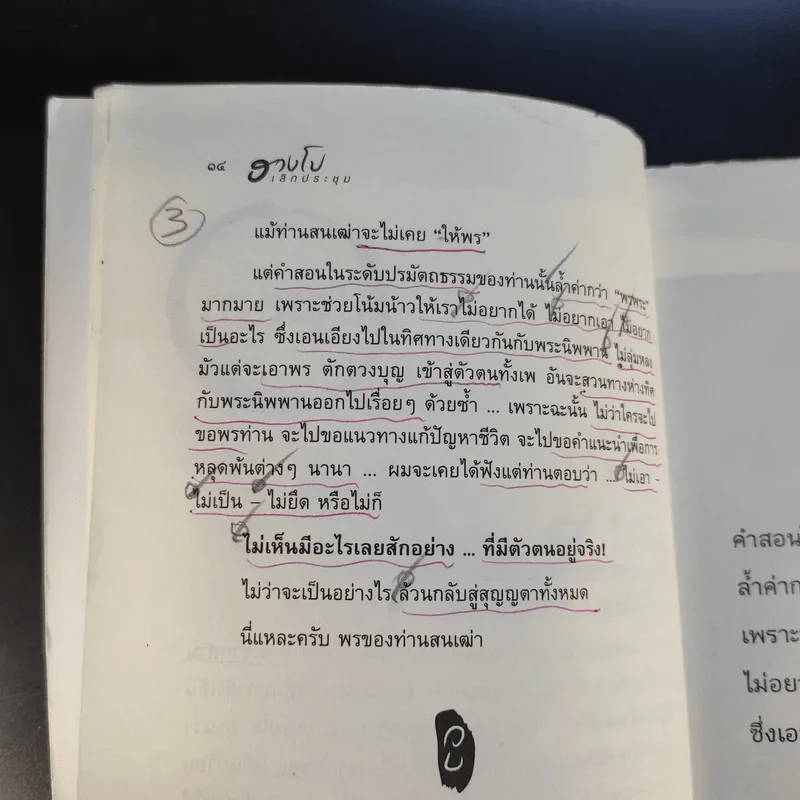 ๑๔ ฮวงโป
เลิกประชุม
3
แม้ท่านสนเฒ่าจะไม่เคย "ให้พร"
แต่คำสอนในระดับปรมัตถธรรมของท่านนั้นล้ำค่ากว่า "พรพระ"
มากมาย เพราะช่วยโน้มน้าวให้เราไม่อยากได้ ไม่อยากเอา ไม่อยาก
เป็นอะไร ซึ่งเอนเอียงไปในทิศทางเดียวกันกับพระนิพพาน ไม่ลุ่มหลง
มัวแต่จะเอาพร ตักตวงบุญ เข้าสู่ตัวตนทั้งเพ อันจะสวนทางห่างทิศ
กับพระนิพพานออกไปเรื่อยๆ ด้วยซ้ำ ... เพราะฉะนั้น ไม่ว่าใครจะไป
ขอพรท่าน จะไปขอแนวทางแก้ปัญหาชีวิต จะไปขอคำแนะนำเพื่อการ
หลุดพ้นต่างๆ นานา ... ผมจะเคยได้ฟังแต่ท่านตอบว่า ... ไม่เอา -
ไม่เป็น - ไม่ยึด หรือไม่ก็
ไม่เห็นมีอะไรเลยสักอย่าง ... ที่มีตัวตนอยู่จริง!
ไม่ว่าจะเป็นอย่างไร ล้วนกลับสู่สุญญตาทั้งหมด
นี่แหละครับ พรของท่านสนเฒ่า
คำสอน
ล้ำค่าก
เพราะ
ไม่อย
ซึ่งเอ